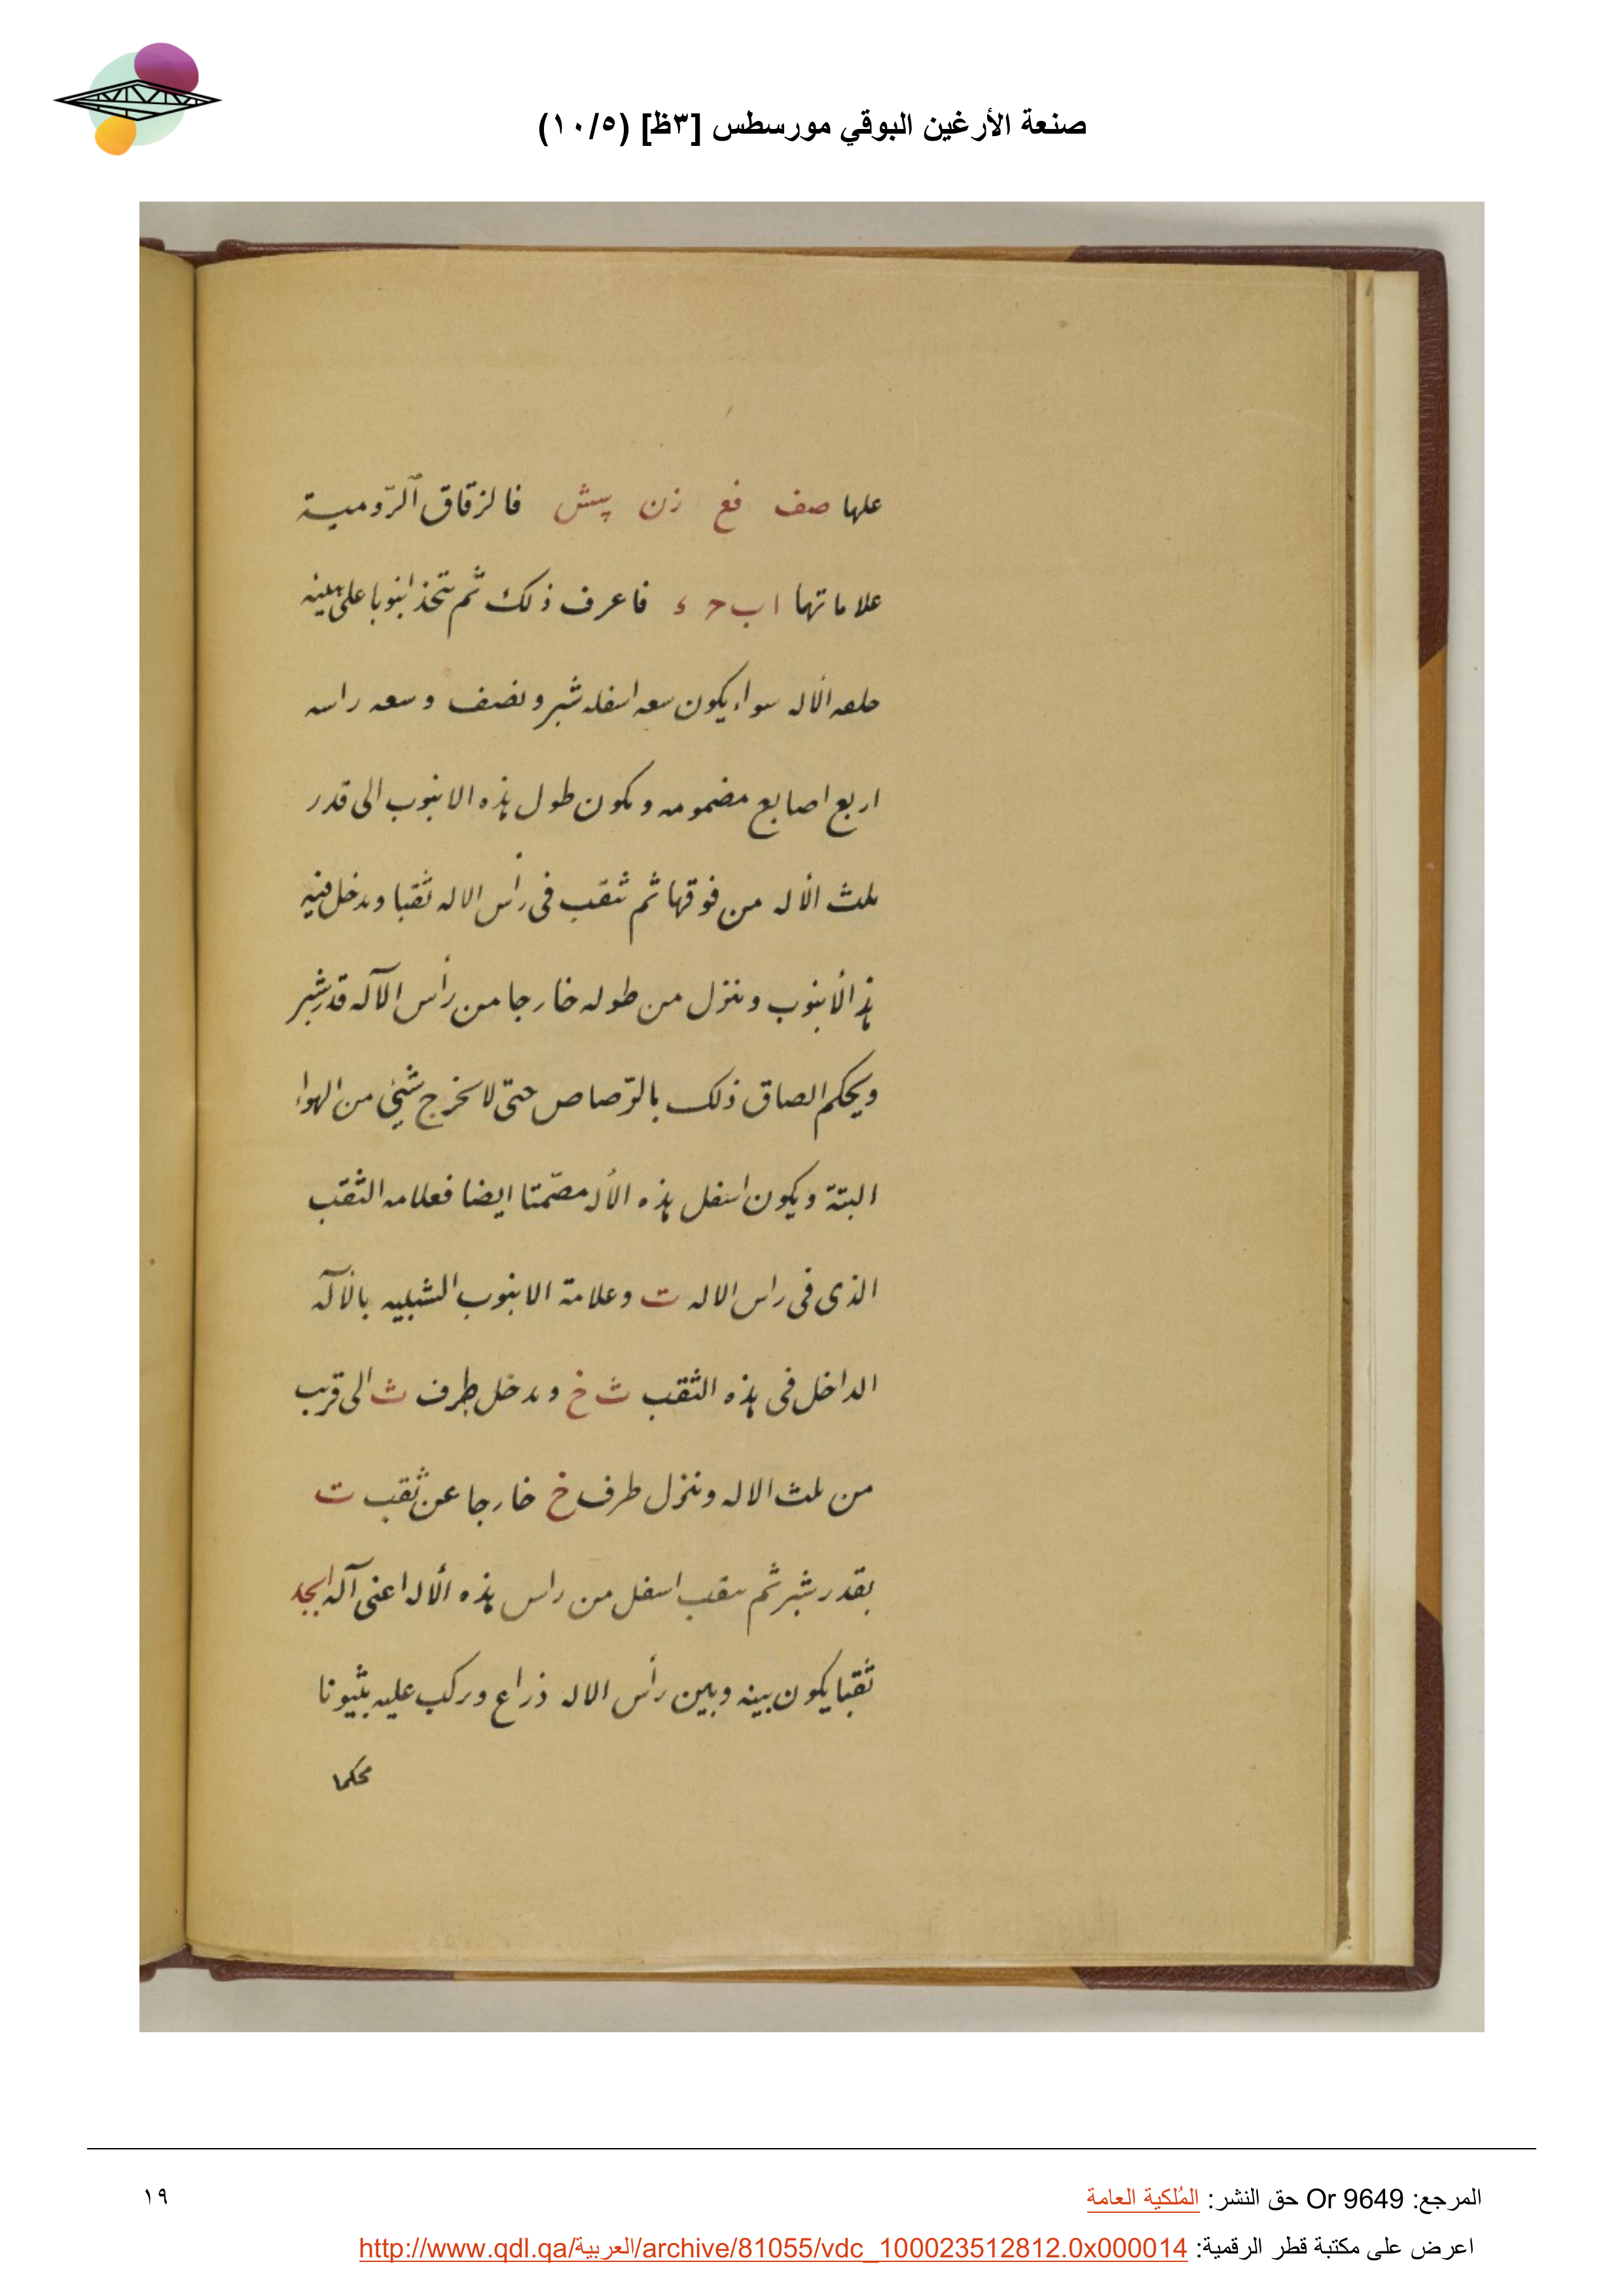 صنعة الأرغين البوقي مورسطس [٣ظ] (١٠/٥)
علها صف فع زن پيش فالزقاق الرّومية
علاماتها ا ب ح ء فاعرف ذلك ثم تتخذ انبوبا على هيئه
حلعه الاله سواء يكون سعه اسفله شبر ونصف وسعه راسه
اربع اصابع مضمومه وىكون طول هذه الانبوب الى قدر
ىلث الاله من فوقها ثم تثقب فى رأس الاله ثقبا وىدخل فيه
هذ الأنبوب وىنزل من طوله خارجا من رأس الآله قدر شبر
ويحكم الصاق ذلك بالرّصاص حتى لا ىخرج شئ من الهواء
البتة ويكون اسفل هذه الأله مصمّتا ايضا فعلامه الثقب
الذى فى راس الاله ت وعلامة الانبوب الشبيه بالآله
الداخل فى هذه الثقب ث خ وىدخل طرف ث الى قريب
من ىلث الاله وىنزل طرف خ خارجا عن ثقب ت
بقدر شبر ثم ىىقب اسفل من راس هذه الأله اعنى آله ابجد
ثقبا يكون بينه وبين رأس الاله ذراع وىركب عليه بثيونا
محكما
المرجع: Or 9649 حق النشر: المُلكية العامة
١٩
اعرض على مكتبة قطر الرقمية: http://www.qdl.qa/العربية/archive/81055/vdc_100023512812.0x000014